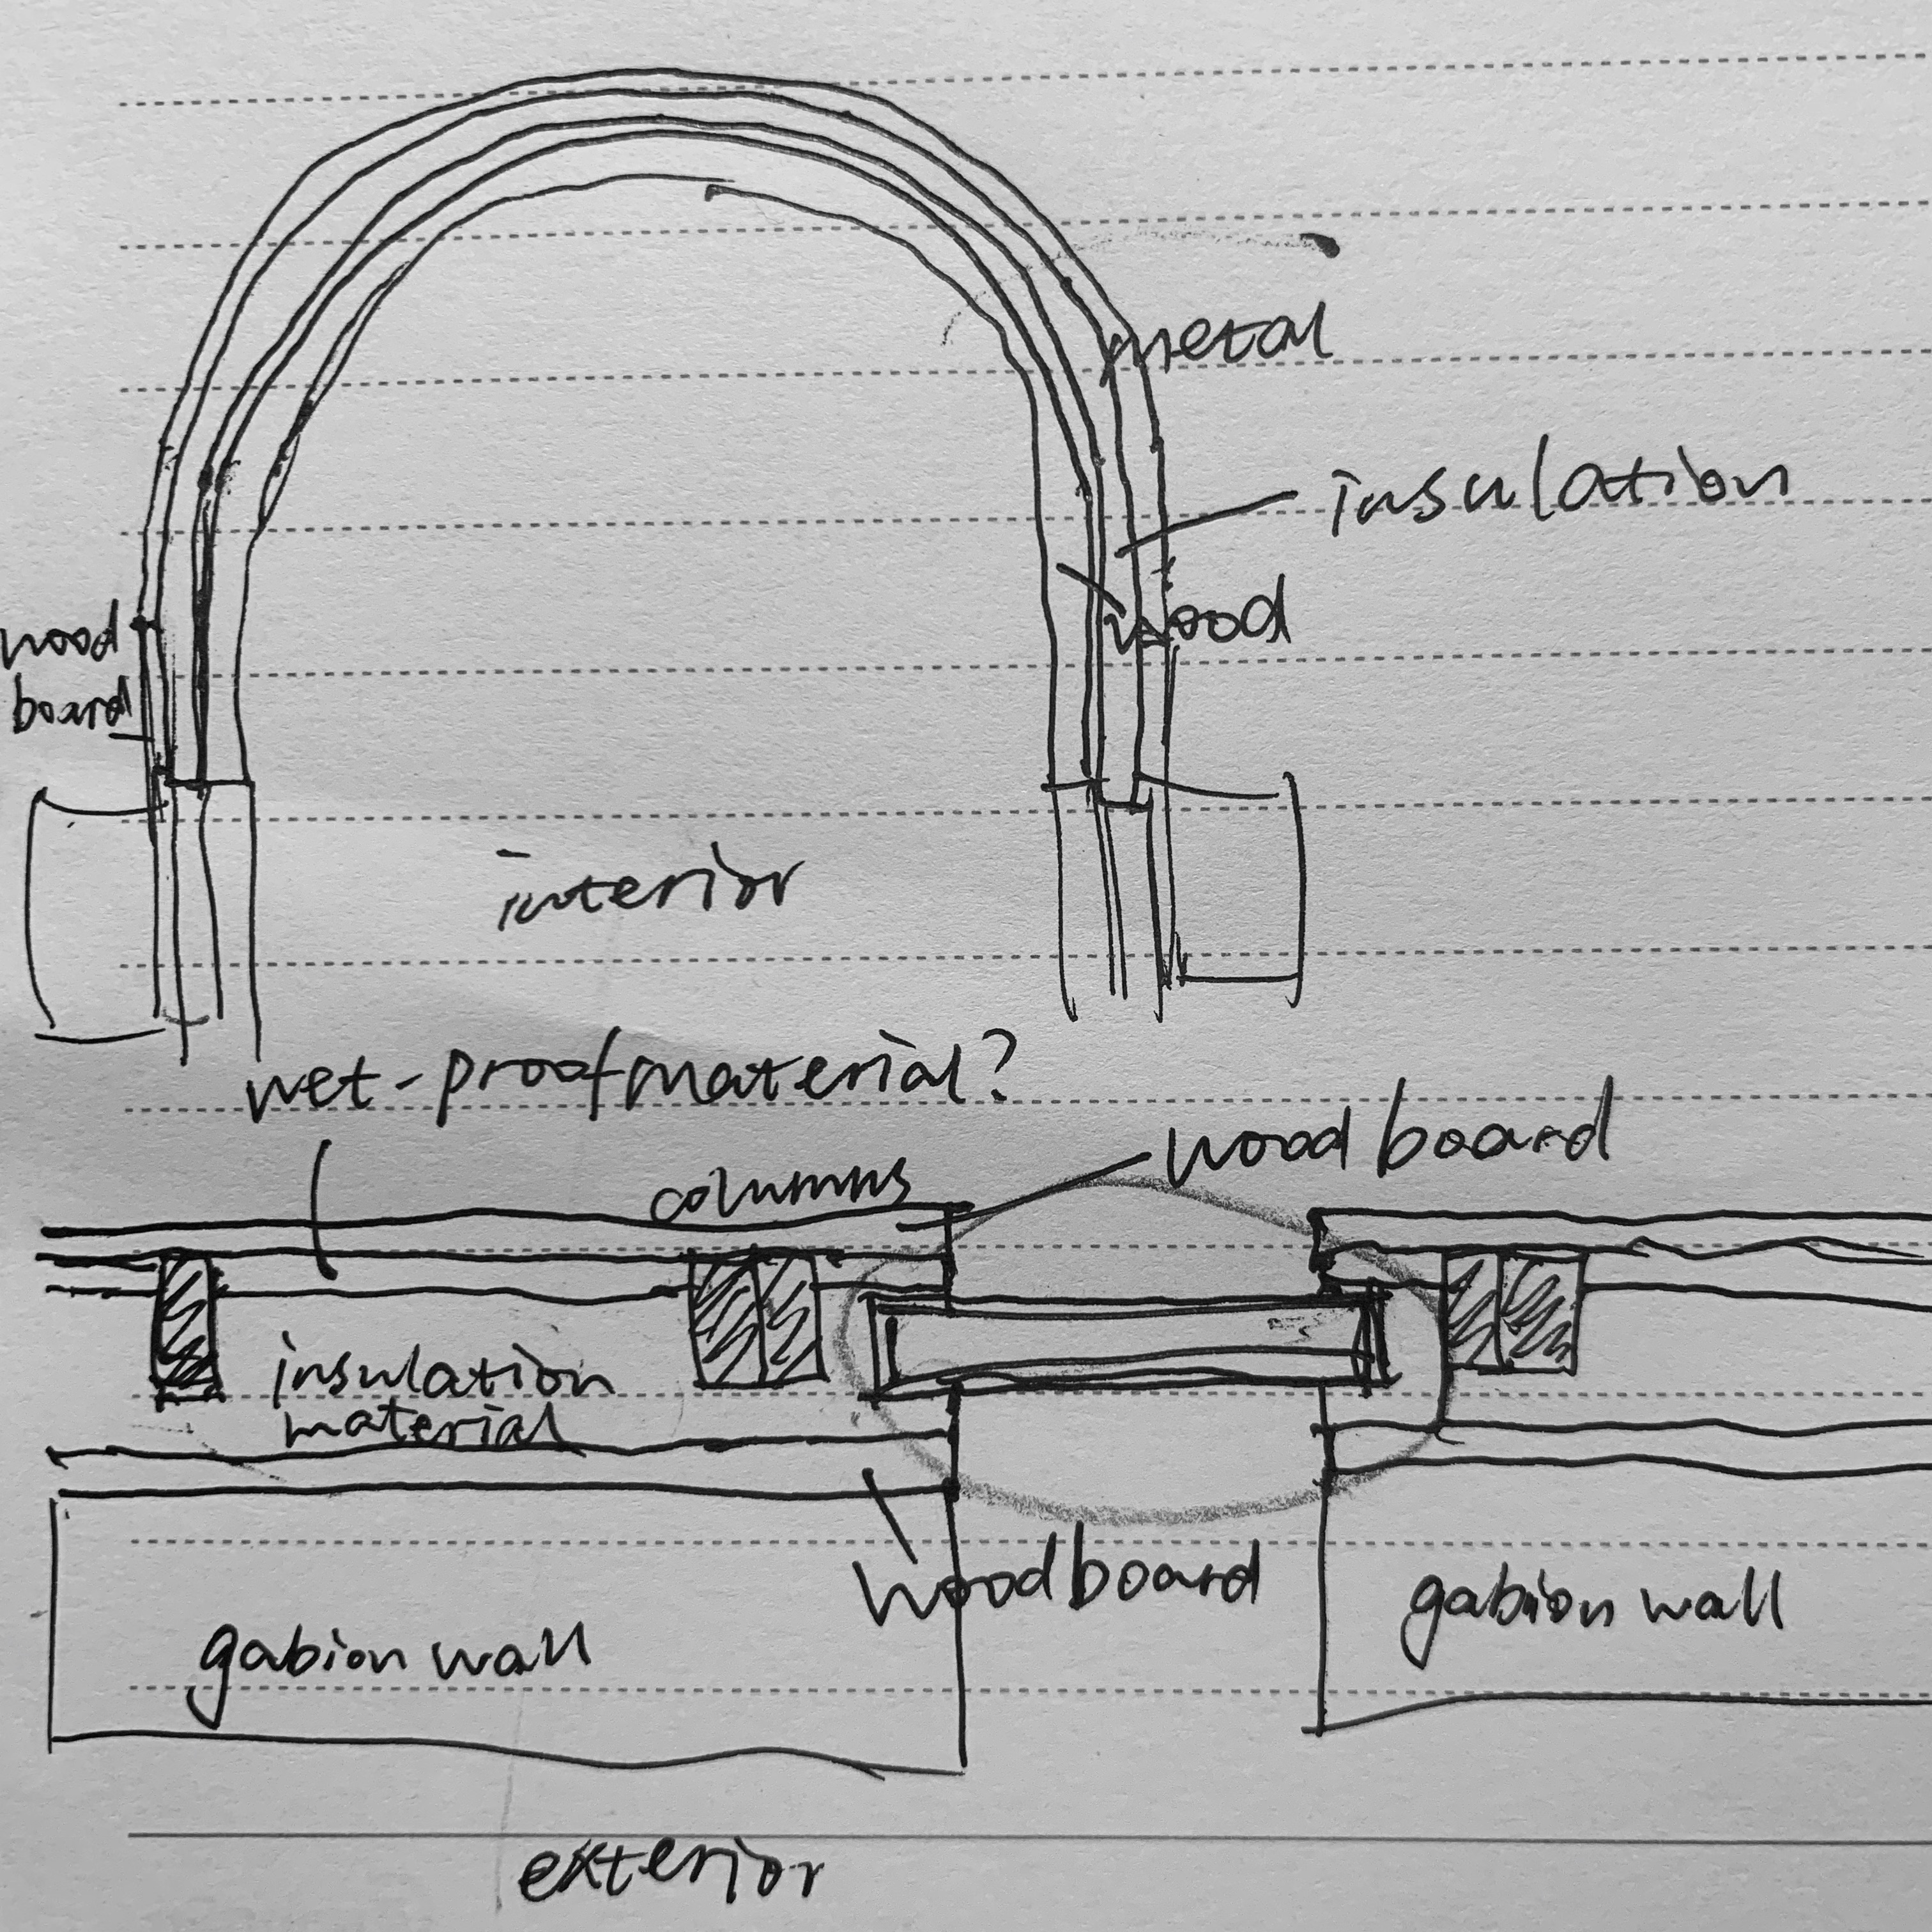 metal
insulation
wood
wood
board
interior
wet-proof material?
wood board
columns
insulation
material
wood board
gabion wall
gabion wall
exterior